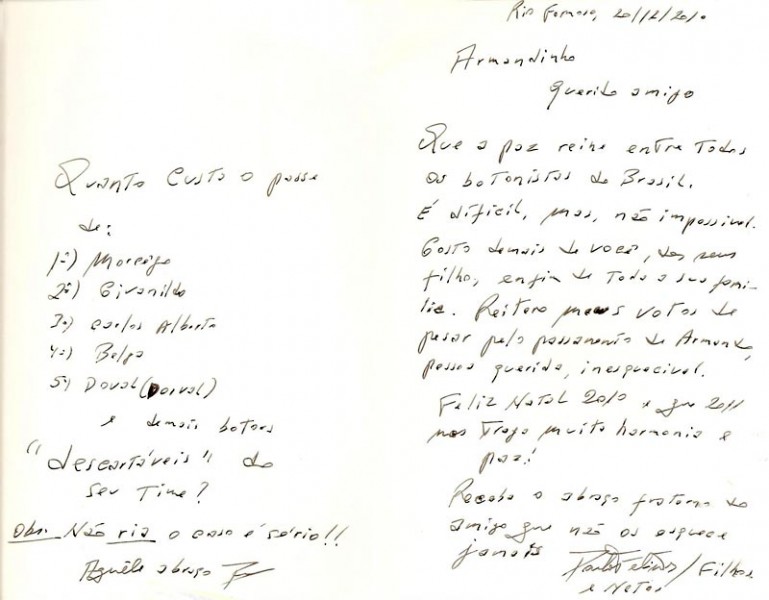 Quanto Custa o passe
de:
1º) Morcêgo
2º) Givanildo
3º) Carlos Alberto
4º) Belga
5º) Doval (Dorval)
e demais botons
"descartáveis" do
seu Time?
Obs. Não ria o caso é sério!!
Aquêle abraço
Rio Formoso, 20/12/2010
Armandinho
Querido amigo
Que a paz reine entre Todos
os botonistas do Brasil.
É difícil, mas, não impossível.
Gosto demais de você, dos seus
filho, enfim de Toda a sua famí-
lia. Reitero meus votos de
pesar pelo passamento de Armando,
pessoa querida, inesquecível.
Feliz Natal 2010 e que 2011
nos Traga muita harmonia e
paz!
Receba o abraço fraterno do
amigo que não os esquece
jamais / Filhos
e Netos